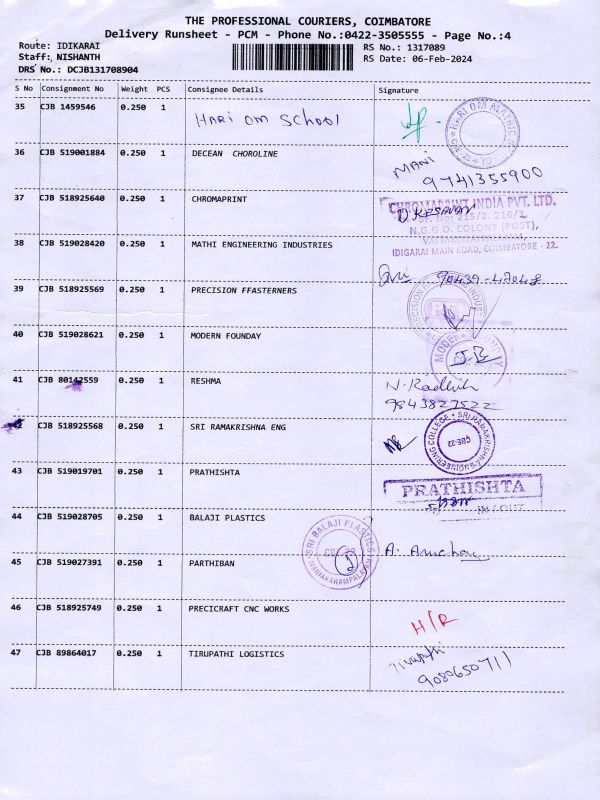 THE PROFESSIONAL COURIERS, COIMBATORE
Delivery Runsheet - PCM - Phone No.:0422-3505555 - Page No.:4
Route: IDIKARAI RS No.: 1317089
Staff: NISHANTH RS Date: 06-Feb-2024
DRS No.: DCJB131708904
S No Consignment No Weight PCS Consignee Details Signature
35 CJB 1459546 0.250 1 HARI OM School
HARI OM MATRIC
36 CJB 519001884 0.250 1 DECEAN CHOROLINE
MANI
9741355900
37 CJB 518925640 0.250 1 CHROMAPRINT
CHROMAPRINT INDIA PVT. LTD.
215/2, 216/2,
N.G.G.O. COLONY (POST),
IDIGARAI MAIN ROAD, COIMBATORE - 22.
38 CJB 519028420 0.250 1 MATHI ENGINEERING INDUSTRIES
39 CJB 518925569 0.250 1 PRECISION FFASTERNERS
40 CJB 519028621 0.250 1 MODERN FOUNDAY
41 CJB 80142559 0.250 1 RESHMA
N. Radhik
9843827522
42 CJB 518925568 0.250 1 SRI RAMAKRISHNA ENG
SRI RAMAKRISHNA ENGINEERING COLLEGE
CBE-22
43 CJB 519019701 0.250 1 PRATHISHTA
PRATHISHTA
44 CJB 519028705 0.250 1 BALAJI PLASTICS
SRI BALAJI PLASTICS
45 CJB 519027391 0.250 1 PARTHIBAN
46 CJB 518925749 0.250 1 PRECICRAFT CNC WORKS
H/R
47 CJB 89864017 0.250 1 TIRUPATHI LOGISTICS
Tirupathi
9080650711